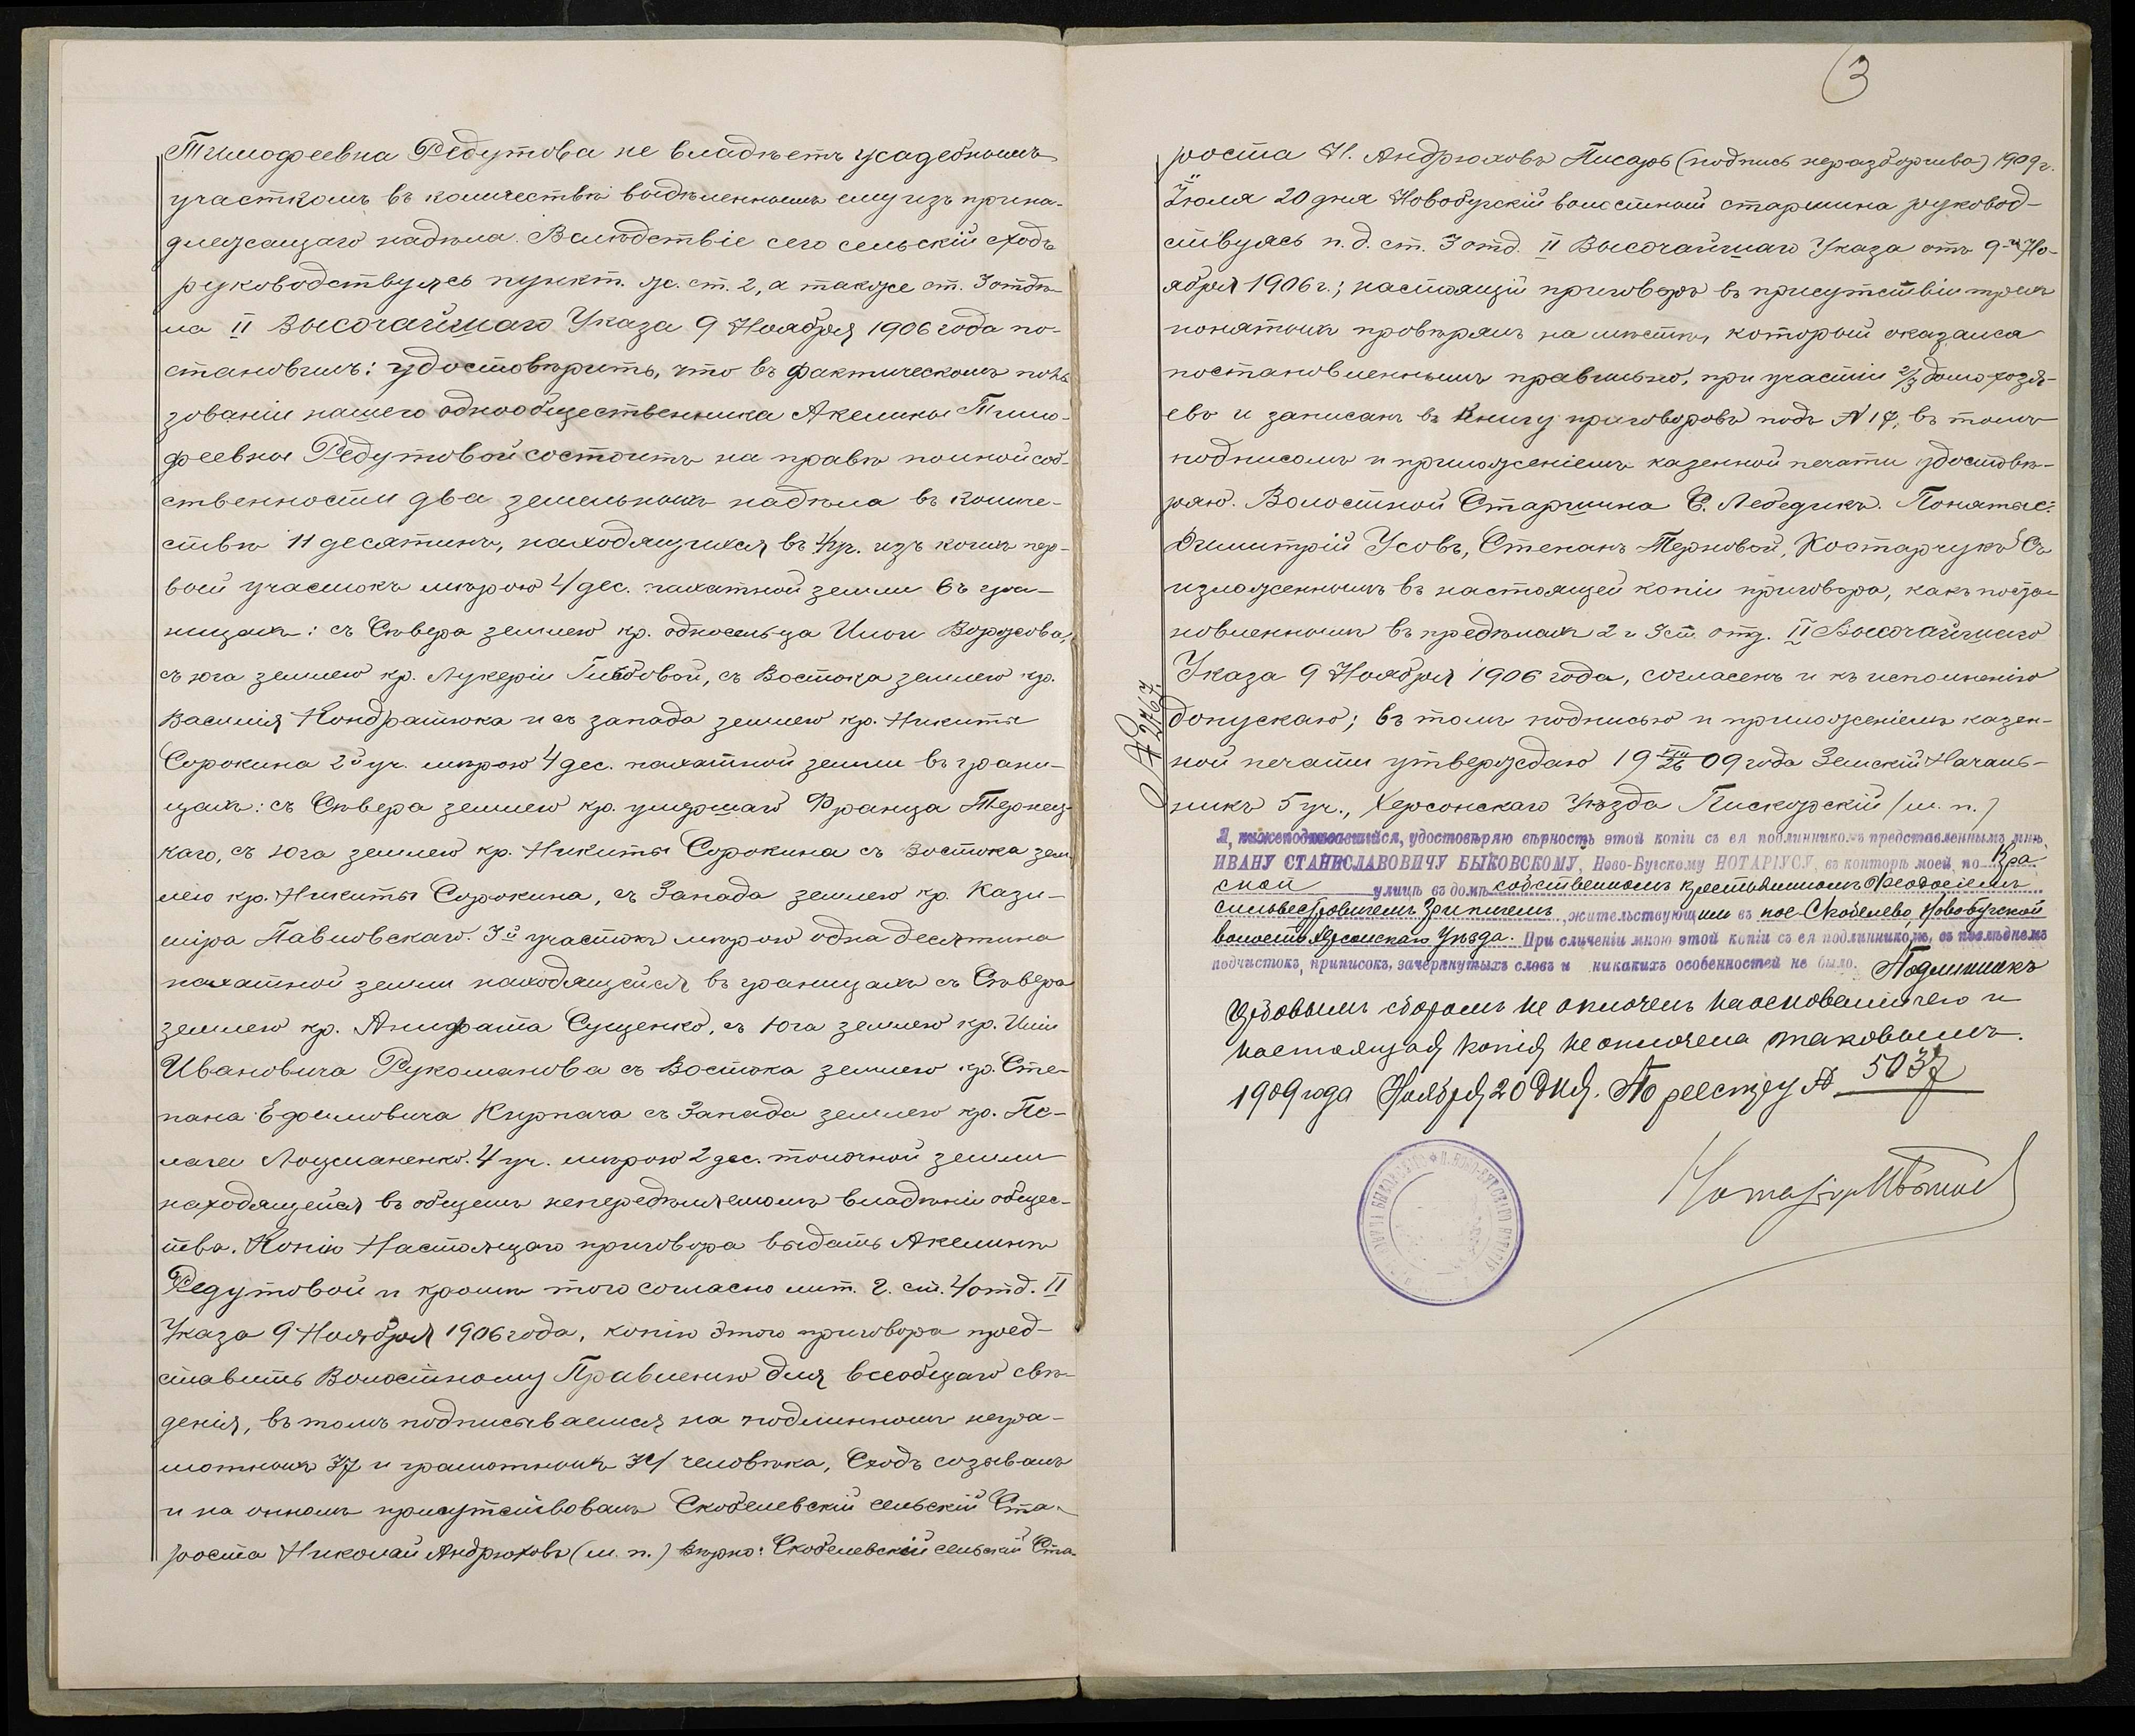 Тимофеевна Редутова не владѣетъ усадебнымъ
участкомъ въ количествѣ выдѣленномъ ему изъ прина-
длежащаго надѣла. Вслѣдствіе сего сельскій сходъ
руководствуясь пункт. ж. ст. 2, а также ст. 3 отдѣ-
ла II Высочайшаго Указа 9 Ноября 1906 года по-
становилъ: удостовѣрить, что въ фактическомъ поль
зованіи нашего однообщественника Акелины Тимо-
феевны Редутовой состоитъ на правѣ полной соб-
ственности два земельныхъ надѣла въ количе-
ствѣ 11 десятинъ, находящихся въ 4 уч. изъ коихъ пер-
вый участокъ мѣрою 4 дес. пахатной земли въ гра-
ницахъ: съ Сѣвера землею кр. односельца Ильи Воржова,
съ юга землею кр. Лукеріи, съ Востока землею кр.
Василія Кондратюка и съ запада землею кр. Никиты
Сорокина 2й уч. мѣрою 4 дес. пахатной земли въ грани-
цахъ: съ Сѣвера землею кр. умершаго Франца Тернец-
каго, съ Юга землею кр. Никиты Сорокина съ Востока зем
лею кр. Никиты Сорокина, съ Запада землею кр. Кази-
міра Павловскаго. 3й участокъ мѣрою одна десятина
пахатной земли находящейся въ границахъ съ Сѣвера
землею кр. Анифата Сущенко, съ Юга землею кр. Ильи
Ивановича Рукоманова съ Востока землею кр. Сте-
пана Ефимовича Кирпача съ Запада землею кр. Пе-
лагеи Лоцманенко. 4 уч. мѣрою 2 дес. толочной земли
находящейся въ общемъ непередѣляемомъ владѣніи общес-
тва. Копію Настоящаго приговора выдать Акелинѣ
Редутовой и кромѣ того согласно лит. г. ст. 4 отд. II
Указа 9 Ноября 1906 года, копію этого приговора пред-
ставить Волостному Правленію для всеобщаго свѣ-
денія, въ томъ подписываемся на подлинномъ негра-
мотныхъ 37 и грамотныхъ 34 человѣка, Сходъ созывалъ
и на ономъ присутствовалъ Скобелевскій сельскій Ста-
роста Николай Андрюховъ (м. п.) Вѣрно: Скобелевскій сельскій Ста-
3
роста Н. Андрюховъ Писарь (подпись неразборчива) 1909 г.
Іюля 20 дня Новобугскій волостной старшина руковод-
ствуясь п. д. ст. 3 отд. II Высочайшаго Указа отъ 9-го Но-
ября 1906 г.; настоящій приговоръ въ присутствіи трехъ
понятыхъ провѣрялъ на мѣстѣ, который оказался
постановленнымъ правильно, при участіи 2/3 домохозя-
евъ и записанъ въ Книгу приговоровъ подъ № 19, въ томъ
подписомъ и приложеніемъ казенной печати удостовѣ-
ряю. Волостной Старшина С. Лебедикъ. Понятые:
Димитрій Усовъ, Степанъ Терновой, Костарчукъ Съ
изложеннымъ въ настоящей копіи приговора, какъ поста-
новленнымъ въ предѣлахъ 2 и 3 ст. отд. II Высочайшаго
Указа 9 Ноября 1906 года, согласенъ и къ исполненію
№ 2767.
допускаю; въ томъ подписью и приложеніемъ казен-
ной печати утверждаю 19 VIII/26 09 года Земскій Началь-
никъ 5 уч., Херсонскаго Уѣзда Пискорскій (м. п.)
Я, нижеподписавшійся, удостовѣряю вѣрность этой копіи съ ея подлинникомъ представленнымъ мнѣ,
ИВАНУ СТАНИСЛАВОВИЧУ БЫКОВСКОМУ, Ново-Бугскому НОТАРІУСУ, въ конторѣ моей, по Кра
сной улицѣ въ домѣ собственномъ крестьяниномъ Феодосіемъ
Сильвестровичемъ, жительствующимъ въ пос. Скобелево, Новобугской
волости Херсонскаго Уѣзда. При сличеніи мною этой копіи съ ея подлинникомъ, въ послѣднемъ
подчистокъ, приписокъ, зачеркнутыхъ словъ и никакихъ особенностей не было. Подлинникъ
Гербовымъ сборомъ не оплоченъ на основаніи чего и
настоящая копія не оплочена таковымъ.
1909 года Ноября 20 дня. По реестру № 5037
Нотаріусъ